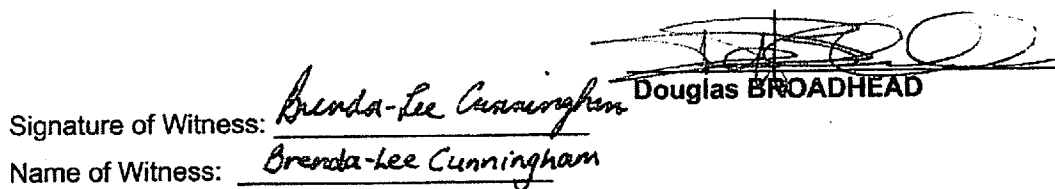 Douglas BROADHEAD
Signature of Witness: Brenda-Lee Cunningham
Name of Witness: Brenda-Lee Cunningham